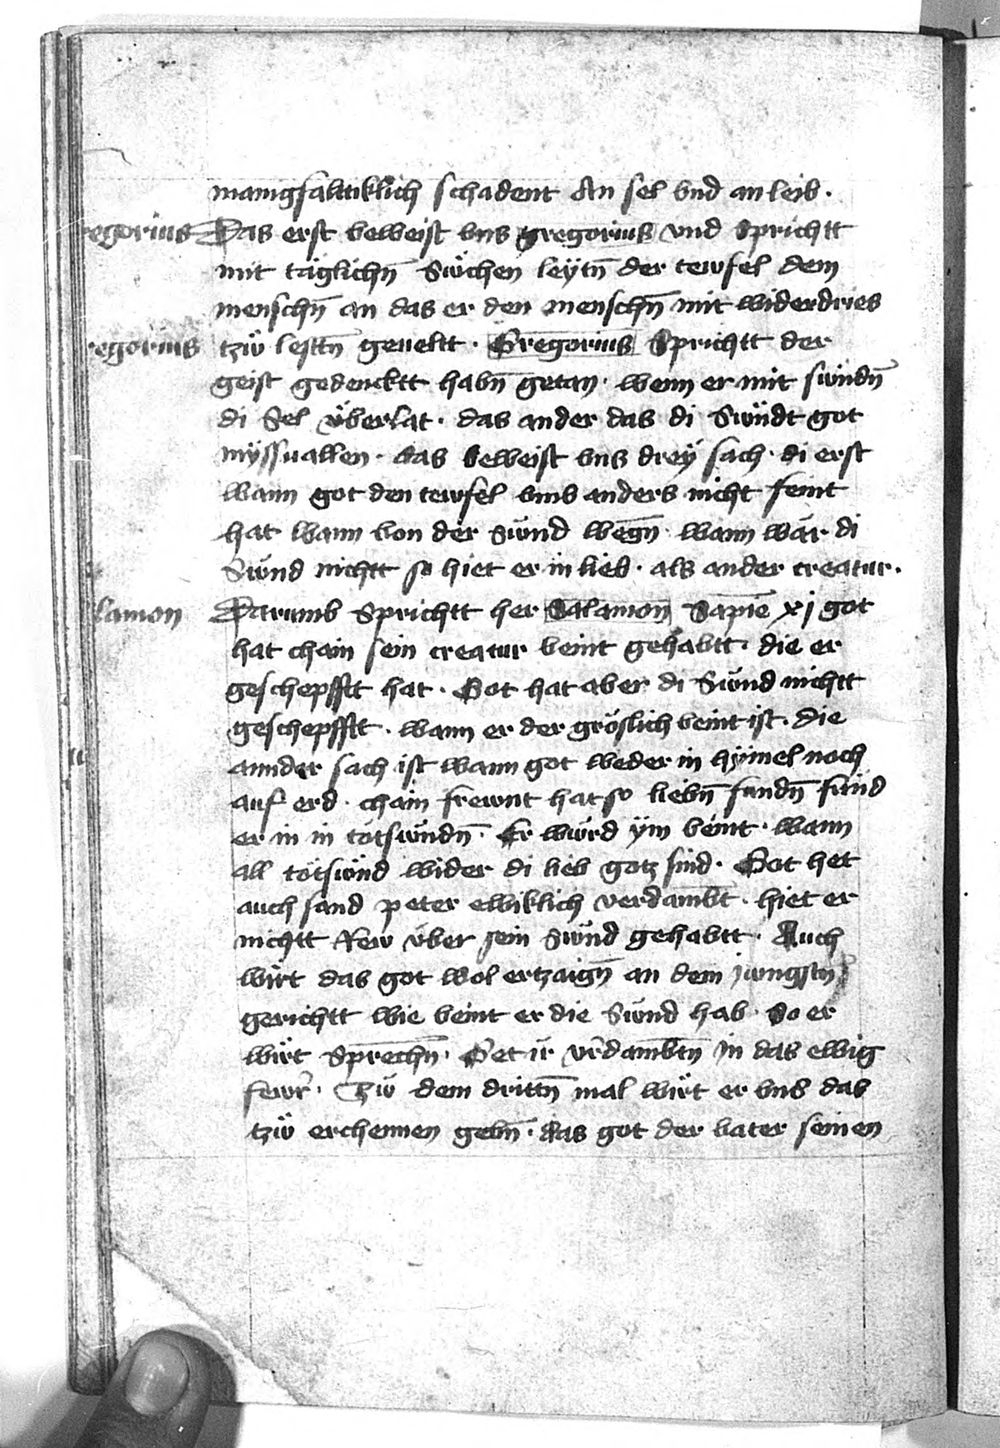 manigfaltiklich schadent An sel vnd an leib.
regorius Das erst beweist vns gregorius vnd Sprichtt
mit täglichn̄ Süchen leytn̄ der tewfel dem
menschn̄ an das er den menschn̄ mit widerdries
regorius tzü lestn̄ geueltt. Gregorius Sprichtt der
geist gedencktt habn̄ getan. wenn er mit sündn̄
di Sel überlat. das ander das di Sündt got
myssuallen. das beweist vns drey sach. di erst
wann got den tewfel vmb anders nicht feint
hat wann von der sünd wegn̄. wann wär di
Sünd nichtt so hiet er in lieb. als ander creatur.
lamon Darumb Sprichtt her Salamon Sapīe xj got
hat chain sein creatur veint gehabtt. die er
geschepfftt hat. Got hat aber di Sünd nichtt
geschepfftt. wann er der gröslich veint ist. die
annder sach ist wann got weder in hymel noch
auf erd. chain frewnt hat so liebn̄ fundn̄ fünd
er in in tötsündn̄. Er würd ym veint. wann
all tötsünd wider di lieb gotz sind. Got het
auch sand peter ewiklich verdambt. hiet er
nichtt Rew über sein Sünd gehabtt. Auch
wirt das got wol ertzaign̄ an dem jungstn̄
gerichtt wie veint er die Sünd hab. So er
wirt Sprechn̄. Get ir v̄dambtn̄ in das ewig
fewr̄. Tzü dem drittn̄ mal wirt er vns das
tzü erchennen gebn̄. das got der vater seinen